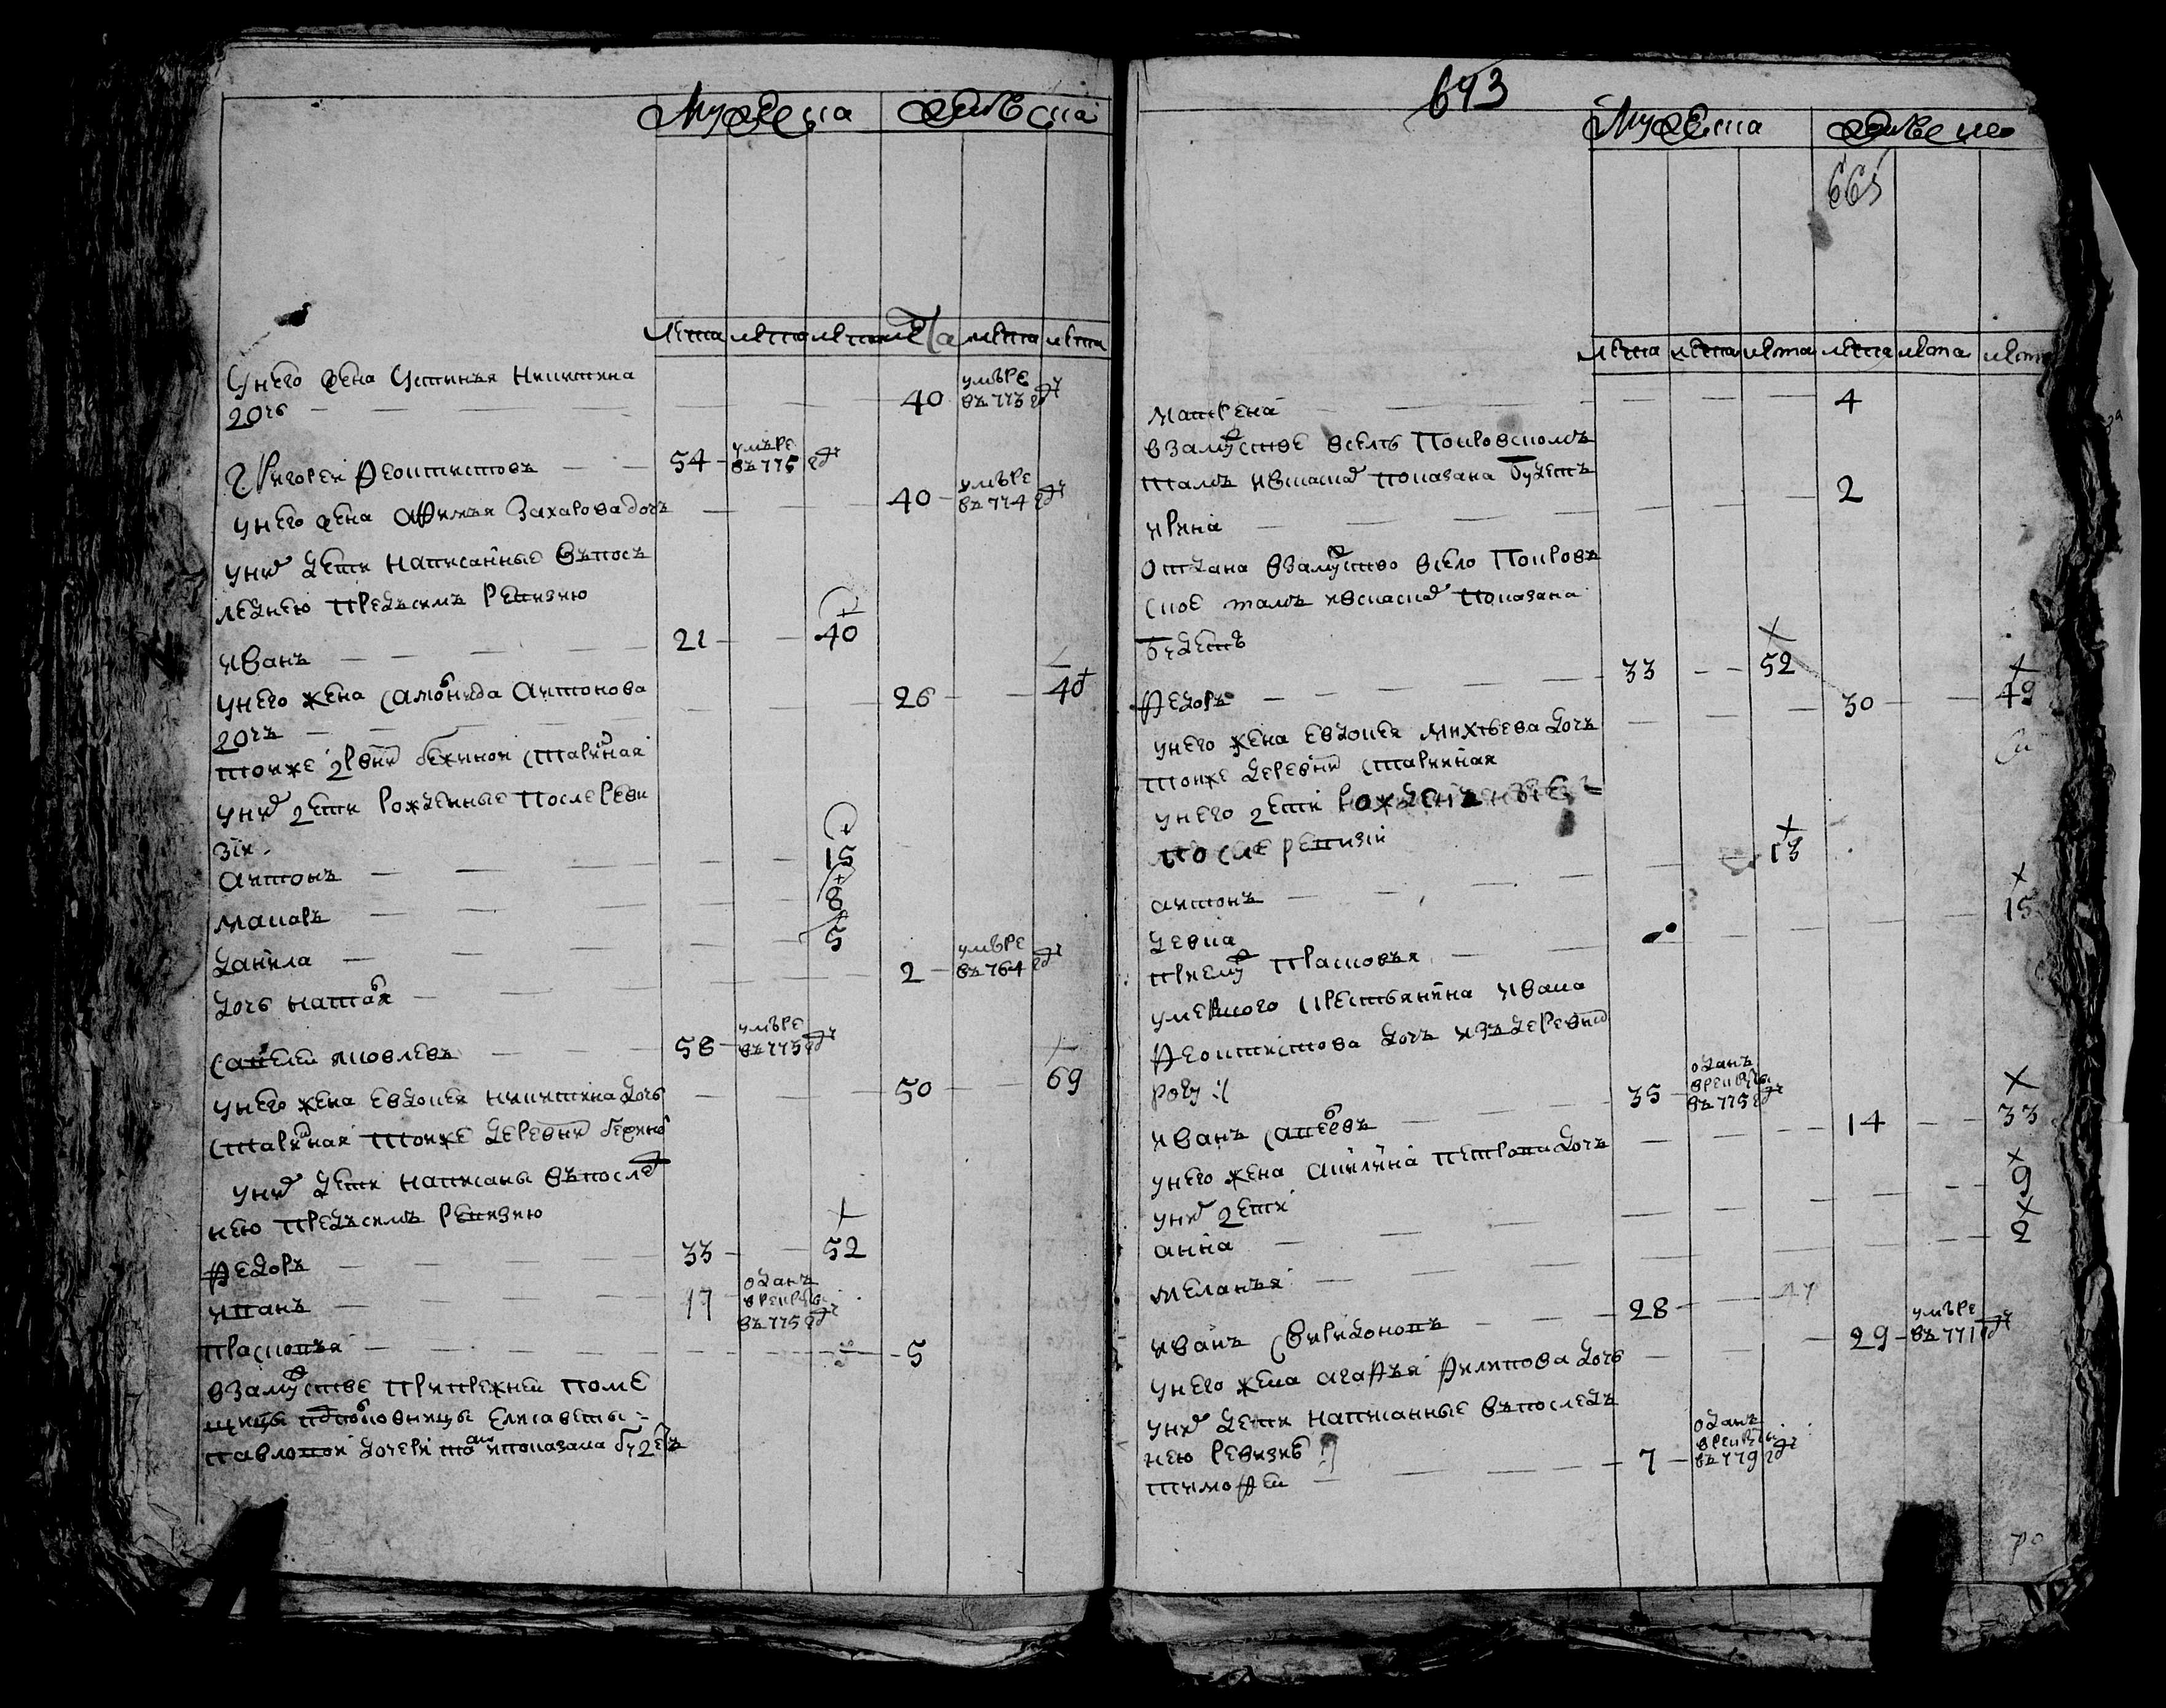 Мужеска Женска
лета лета лета лета лета лета
У него жена Устинья Никитина
дочь 40 умъре въ 773 году
Григорей Феоктистовъ 54 умъре въ 775 году
у него жена Афимья Захарова дочь 40 умъре въ 774 году
у них дети написанные въ пос
леднею предъ симъ ревизию
Иванъ 21 40
у него жена Самонида Антонова 26 40
дочь
тоиже
у них дети рожденные после реви
зіи
Антонъ 15
Макаръ 8
Данила 5
дочь Наталя 2 умъре въ 764 году
Савелеи Яковлевъ 58 умъре въ 773 году
у него жена Евдокея Никитина дочь 50 69
старинная тоиже деревни
у них дети написаны въ послед
нею предъ симъ ревизию
Федоръ 33 52
Иванъ 17 оданъ в рекруты въ 775 году
Прасковья 5
в замужстве
Елисаветы
Павловой дочери там и показана будетъ
693
Мужеска Женска
665
лета лета лета лета лета лета
Матрена 4
в замужстве в селе Покровскомъ
тамъ и в скаске показана будетъ
Ирина 2
отдана в замужство в село Покров
ское тамъ и в скаске показана
будетъ
Федоръ 33 52
у него жена Евдокея Михеева дочь 30 49
тоиже деревни старинная
у него дети рожденные
после ревизіи
Антонъ 13
девка
Прасковья 15
умершого крестьянина Ивана
Феоктистова дочь из деревни
Иванъ Савеевъ 35 оданъ в рекруты въ 775 году
у него жена Акилина Петрова дочь 14 33
у них дети
Анна 9
Меланья 2
Иванъ Свиридоновъ 28 47
у него жена Агафья Филипова дочь 29 умъре въ 771 году
у них дети написанные въ послед
нею ревизию
Тимофеи 7 оданъ в рекруты въ 779 году
70